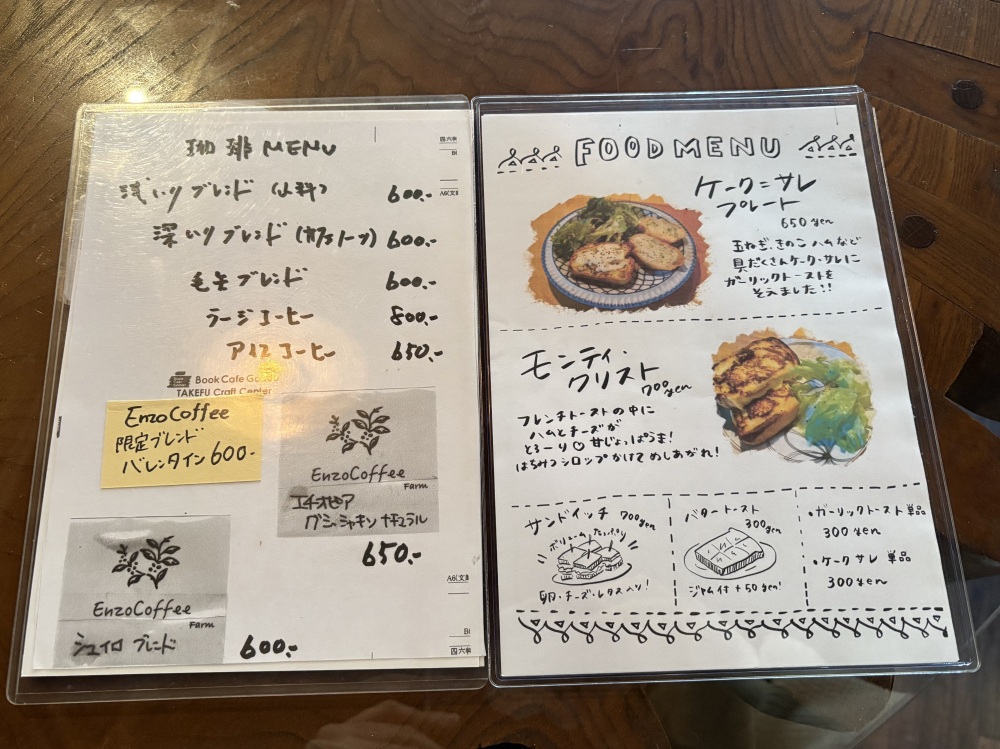 珈琲 MENU
浅いりブレンド 600.-
深いりブレンド 600.-
ブレンド 600.-
ラージコーヒー 800.-
アイスコーヒー 650.-
Book Cafe
TAKEFU Craft Center
EnzoCoffee
限定ブレンド
バレンタイン 600-
EnzoCoffee
Farm
エチオピア
ナチュラル
650.-
EnzoCoffee
Farm
シュイロ ブレンド
600.-
四六判
A6(文庫
A6(文庫
四六判
FOOD MENU
ケークニサレ
プレート
650yen
玉ねぎ、きのこ ハムなど
具だくさんケーク・サレに
ガーリックトーストを
そえました!!
モンティ・
クリスト
700yen
フレンチトーストの中に
ハムとチーズが
とろーり♡甘じょっぱうま!
はちみつシロップかけてめしあがれ!
サンドイッチ 700yen
ボリュームたっぷり
卵・チーズ・レタス入り!
バタートースト
300yen
ジャム付 +50yen!
・ガーリックトースト単品
300yen
・ケークサレ 単品
300yen